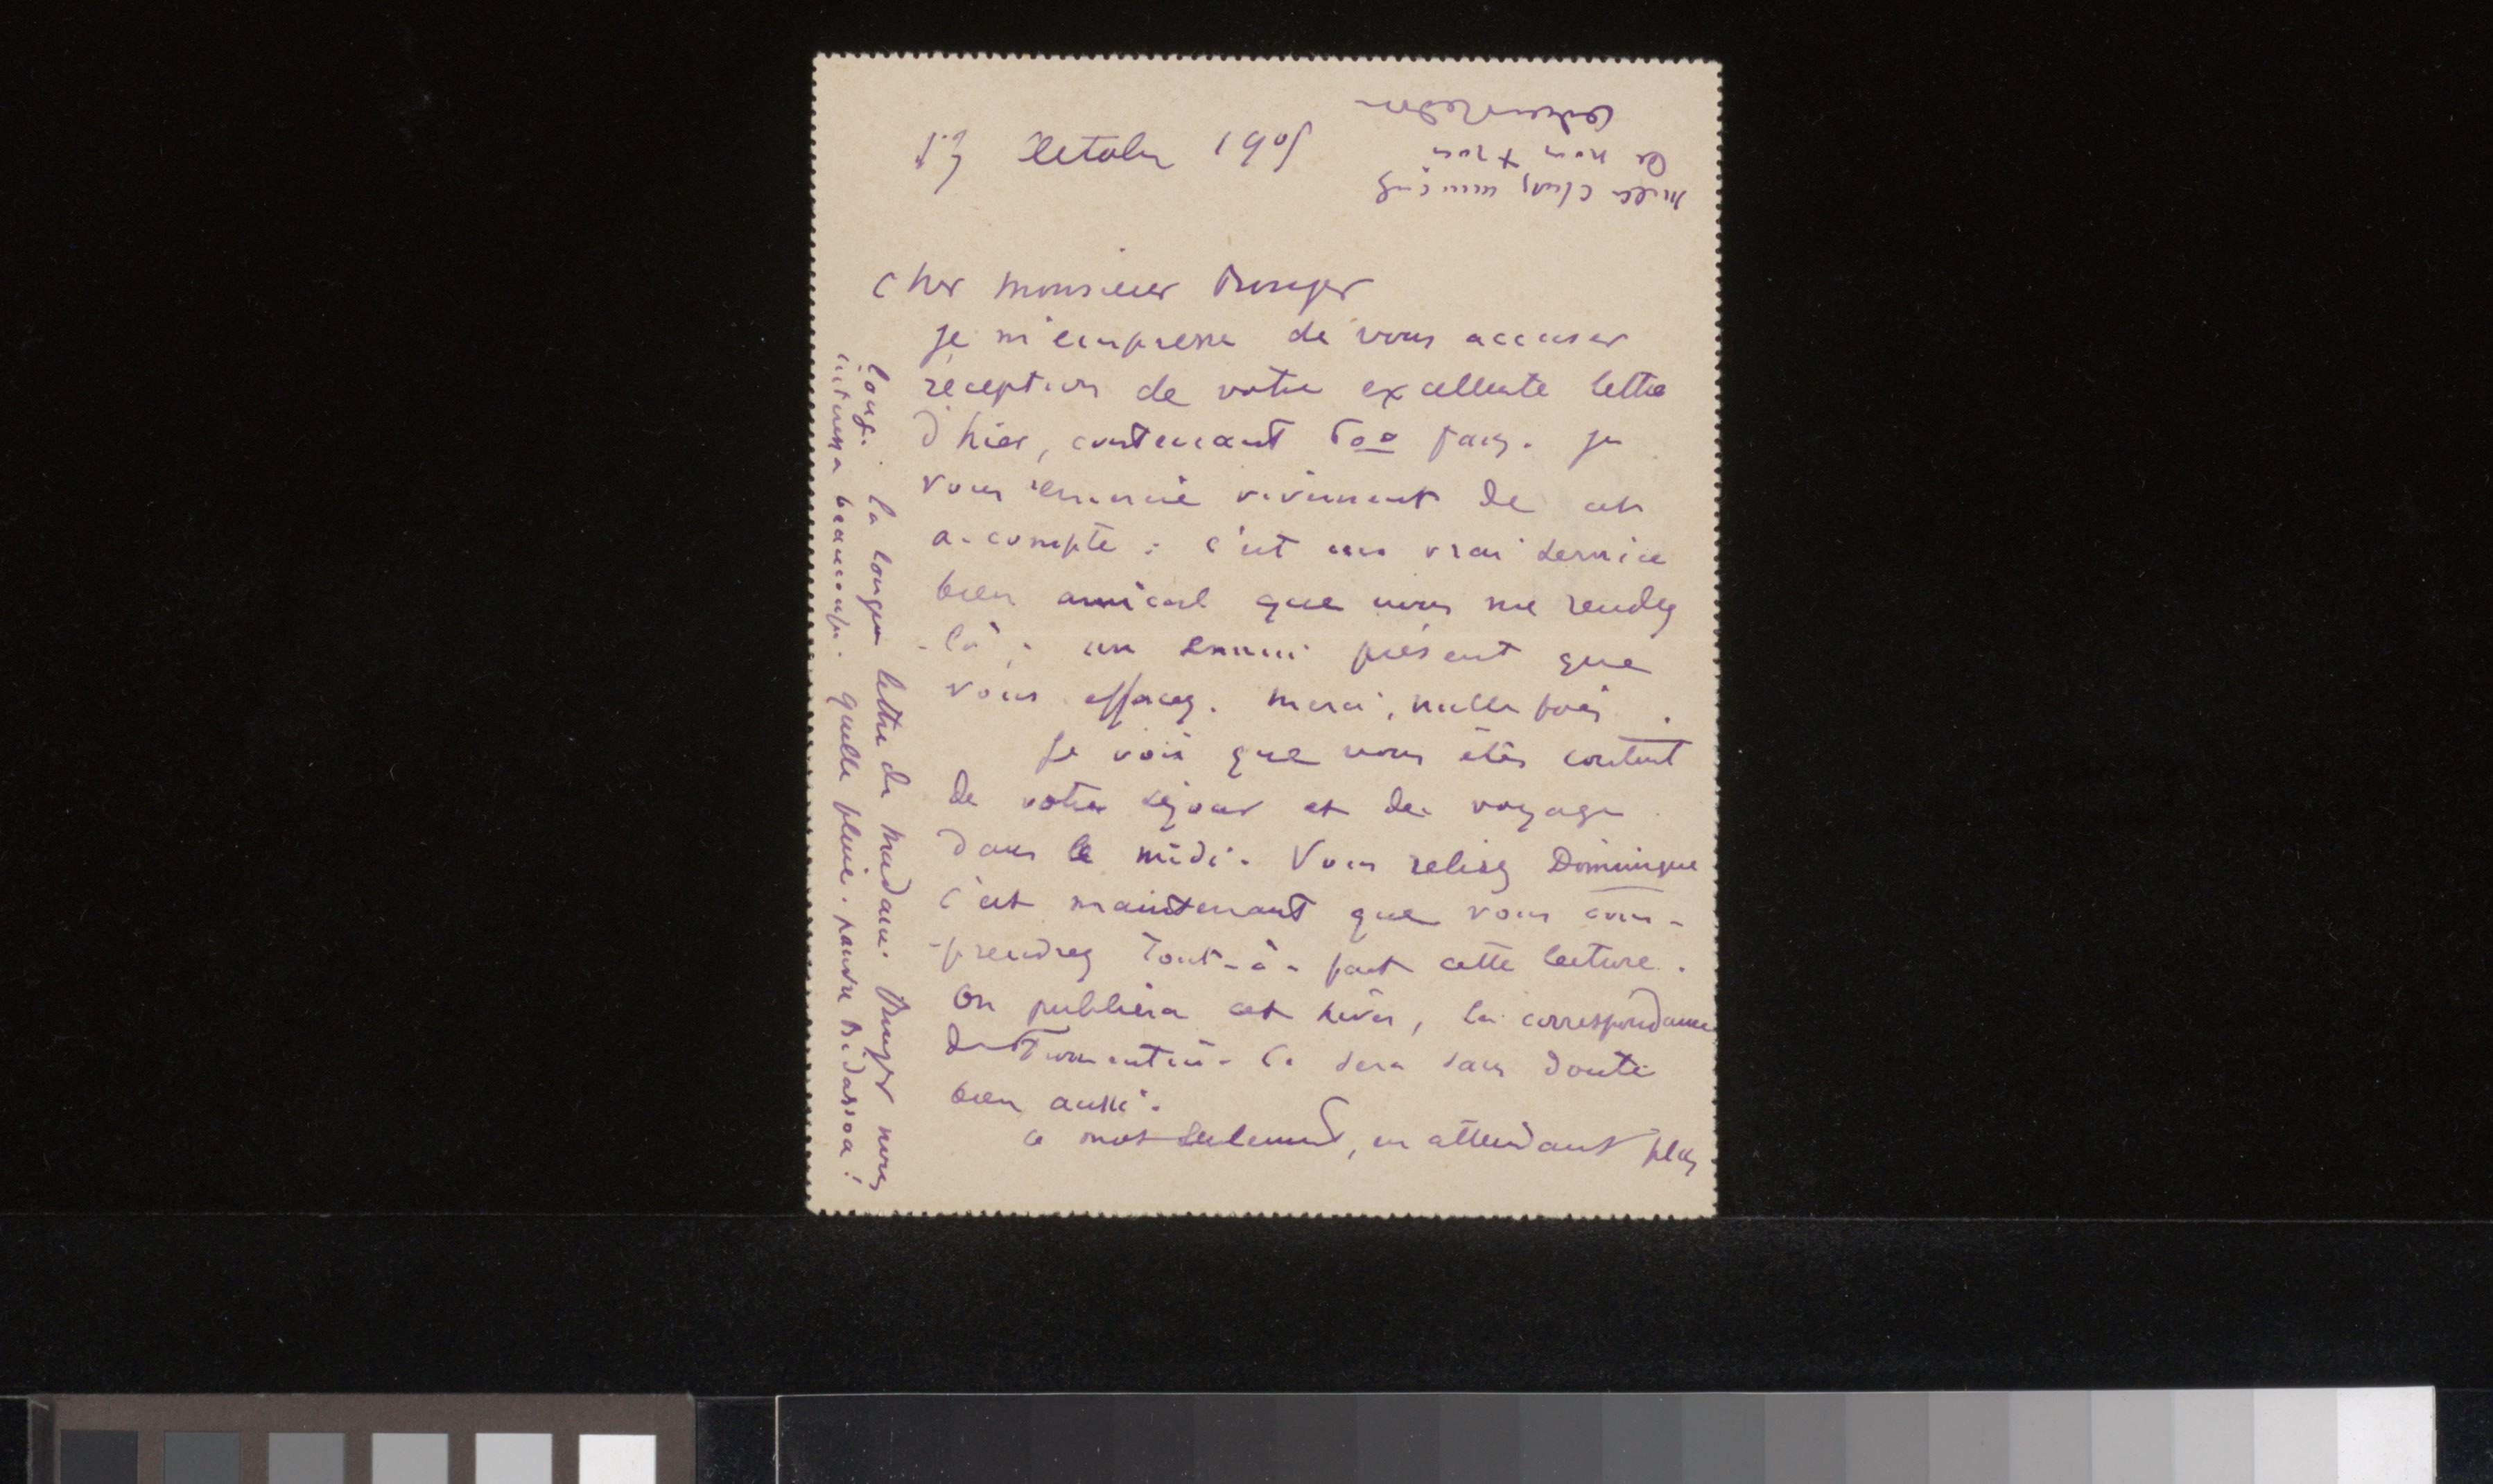 Octobre 1905
Cher monsieur Bonger
Je m'empresse de vous accuser
réception de votre excellente lettre
d'hier, contenant 500 francs. Je
vous remercie vivement de cet
a-compte : c'est un vrai service
bien amical que vous me rendez
-là ; un ennui présent que
vous effacez. Merci, mille fois.
Je vois que vous êtes content
de votre séjour et de voyage
dans le midi. Vous relisez Dominique
c'est maintenant que vous com-
-prendrez tout-à-fait cette lecture.
On publiera cet hiver, la correspondance
de Fromentin. Ce sera sans doute
bien aussi.
Ce mot seulement, en attendant plus
long. La longue lettre de madame Bonger nous
intéressa beaucoup. Quelle pluie. Pauvre Bidassoa !
Mille choses amicales
de nous tous
Odilon Redon